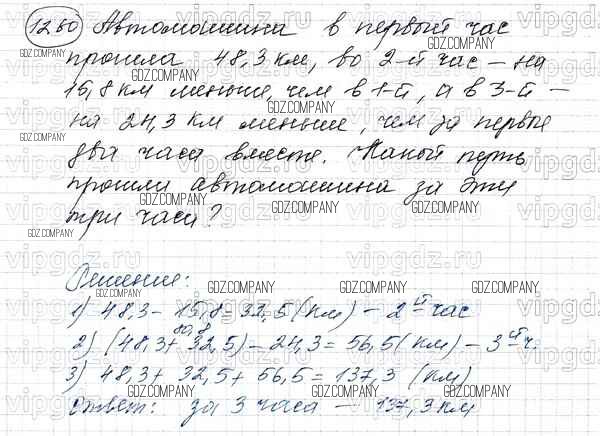 1260 Автомашина в первый час
прошла 48,3 км, во 2-й час – на
15,8 км меньше, чем в 1-й, а в 3-й –
на 24,3 км меньше, чем за первые
два часа вместе. Какой путь
прошла автомашина за эти
три часа?
Решение:
1) 48,3 - 15,8 = 32,5 (км) – 2й час
80,8
2) (48,3 + 32,5) – 24,3 = 56,5 (км) – 3й ч.
3) 48,3 + 32,5 + 56,5 = 137,3 (км)
Ответ: за 3 часа – 137,3 км
GDZ.COMPANY
vipgdz.ru